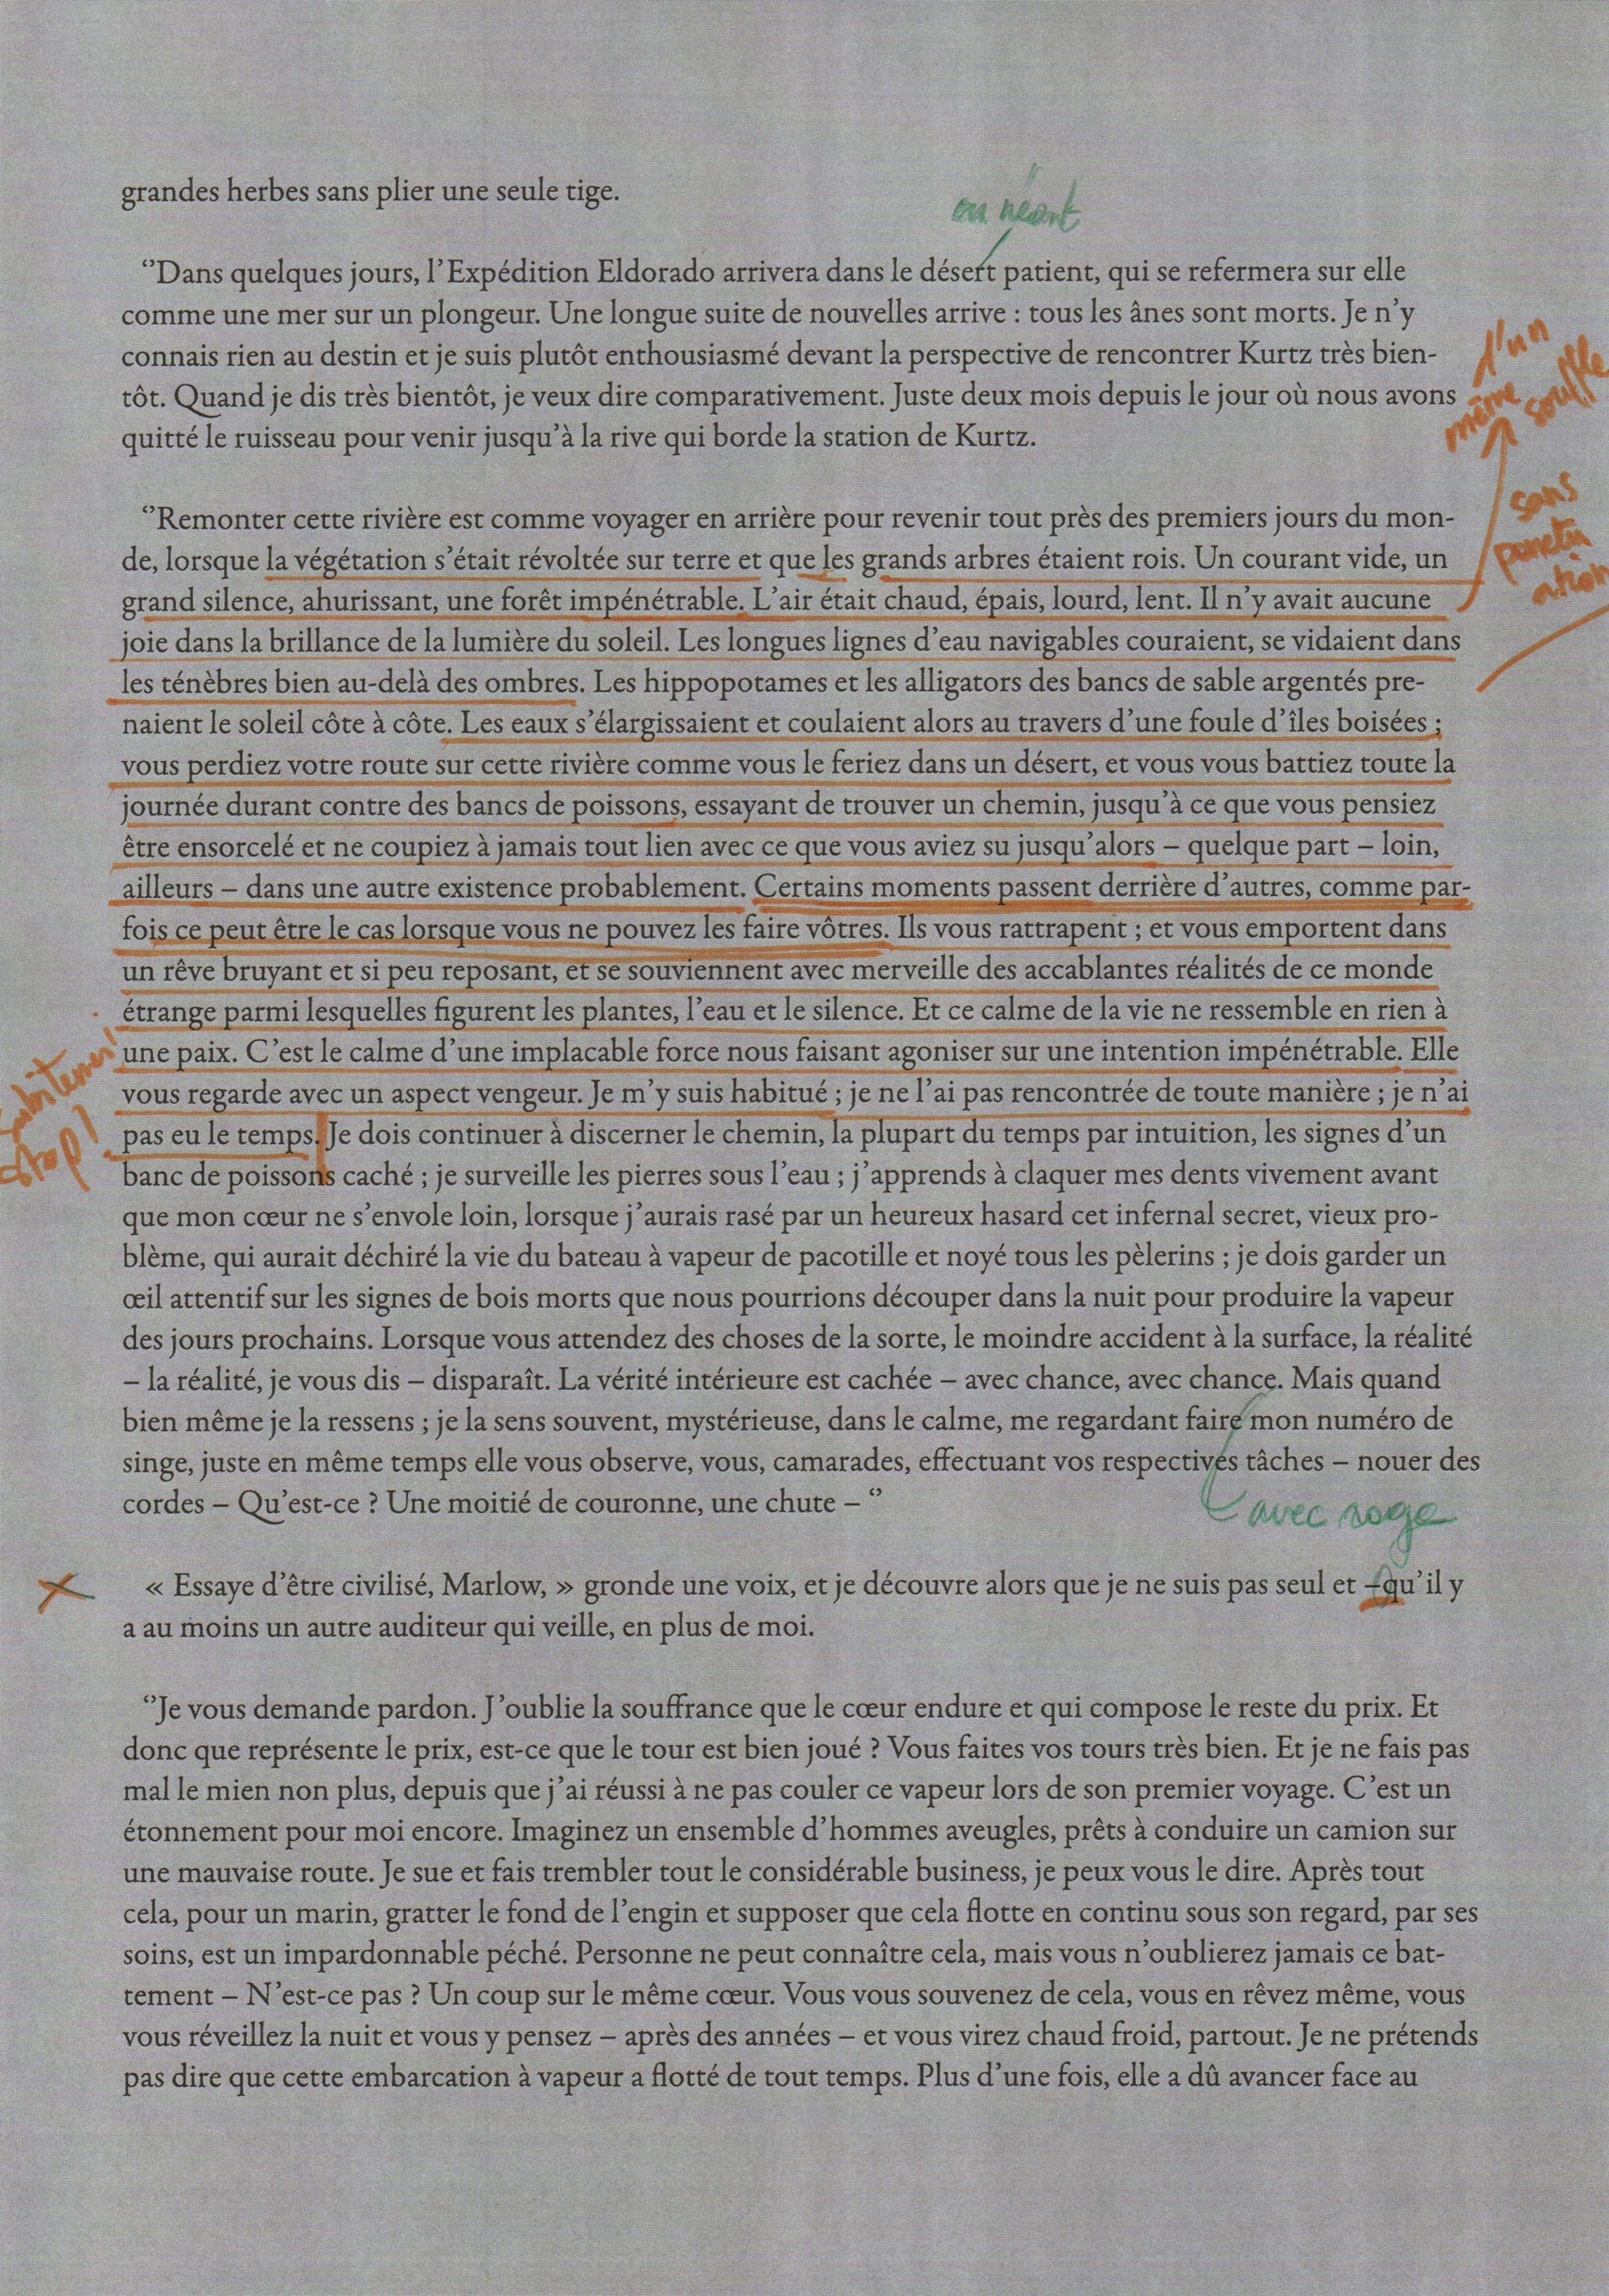 grandes herbes sans plier une seule tige.
ou néant
‘’Dans quelques jours, l’Expédition Eldorado arrivera dans le désert patient, qui se refermera sur elle
comme une mer sur un plongeur. Une longue suite de nouvelles arrive : tous les ânes sont morts. Je n’y
connais rien au destin et je suis plutôt enthousiasmé devant la perspective de rencontrer Kurtz très bien-
tôt. Quand je dis très bientôt, je veux dire comparativement. Juste deux mois depuis le jour où nous avons
quitté le ruisseau pour venir jusqu’à la rive qui borde la station de Kurtz.
d'un
même souffle
sans
ponctu
ation
‘’Remonter cette rivière est comme voyager en arrière pour revenir tout près des premiers jours du mon-
de, lorsque la végétation s’était révoltée sur terre et que les grands arbres étaient rois. Un courant vide, un
grand silence, ahurissant, une forêt impénétrable. L’air était chaud, épais, lourd, lent. Il n’y avait aucune
joie dans la brillance de la lumière du soleil. Les longues lignes d’eau navigables couraient, se vidaient dans
les ténèbres bien au-delà des ombres. Les hippopotames et les alligators des bancs de sable argentés pre-
naient le soleil côte à côte. Les eaux s’élargissaient et coulaient alors au travers d’une foule d’îles boisées ;
vous perdiez votre route sur cette rivière comme vous le feriez dans un désert, et vous vous battiez toute la
journée durant contre des bancs de poissons, essayant de trouver un chemin, jusqu’à ce que vous pensiez
être ensorcelé et ne coupiez à jamais tout lien avec ce que vous aviez su jusqu’alors – quelque part – loin,
ailleurs – dans une autre existence probablement. Certains moments passent derrière d’autres, comme par-
fois ce peut être le cas lorsque vous ne pouvez les faire vôtres. Ils vous rattrapent ; et vous emportent dans
un rêve bruyant et si peu reposant, et se souviennent avec merveille des accablantes réalités de ce monde
étrange parmi lesquelles figurent les plantes, l’eau et le silence. Et ce calme de la vie ne ressemble en rien à
une paix. C’est le calme d’une implacable force nous faisant agoniser sur une intention impénétrable. Elle
vous regarde avec un aspect vengeur. Je m’y suis habitué ; je ne l’ai pas rencontrée de toute manière ; je n’ai
pas eu le temps. Je dois continuer à discerner le chemin, la plupart du temps par intuition, les signes d’un
stop !
banc de poissons caché ; je surveille les pierres sous l’eau ; j’apprends à claquer mes dents vivement avant
que mon cœur ne s’envole loin, lorsque j’aurais rasé par un heureux hasard cet infernal secret, vieux pro-
blème, qui aurait déchiré la vie du bateau à vapeur de pacotille et noyé tous les pèlerins ; je dois garder un
œil attentif sur les signes de bois morts que nous pourrions découper dans la nuit pour produire la vapeur
des jours prochains. Lorsque vous attendez des choses de la sorte, le moindre accident à la surface, la réalité
– la réalité, je vous dis – disparaît. La vérité intérieure est cachée – avec chance, avec chance. Mais quand
bien même je la ressens ; je la sens souvent, mystérieuse, dans le calme, me regardant faire mon numéro de
singe, juste en même temps elle vous observe, vous, camarades, effectuant vos respectives tâches – nouer des
cordes – Qu’est-ce ? Une moitié de couronne, une chute – ‘’
avec rage
« Essaye d’être civilisé, Marlow, » gronde une voix, et je découvre alors que je ne suis pas seul et –qu’il y
a au moins un autre auditeur qui veille, en plus de moi.
‘’Je vous demande pardon. J’oublie la souffrance que le cœur endure et qui compose le reste du prix. Et
donc que représente le prix, est-ce que le tour est bien joué ? Vous faites vos tours très bien. Et je ne fais pas
mal le mien non plus, depuis que j’ai réussi à ne pas couler ce vapeur lors de son premier voyage. C’est un
étonnement pour moi encore. Imaginez un ensemble d’hommes aveugles, prêts à conduire un camion sur
une mauvaise route. Je sue et fais trembler tout le considérable business, je peux vous le dire. Après tout
cela, pour un marin, gratter le fond de l’engin et supposer que cela flotte en continu sous son regard, par ses
soins, est un impardonnable péché. Personne ne peut connaître cela, mais vous n’oublierez jamais ce bat-
tement – N’est-ce pas ? Un coup sur le même cœur. Vous vous souvenez de cela, vous en rêvez même, vous
vous réveillez la nuit et vous y pensez – après des années – et vous virez chaud froid, partout. Je ne prétends
pas dire que cette embarcation à vapeur a flotté de tout temps. Plus d’une fois, elle a dû avancer face au